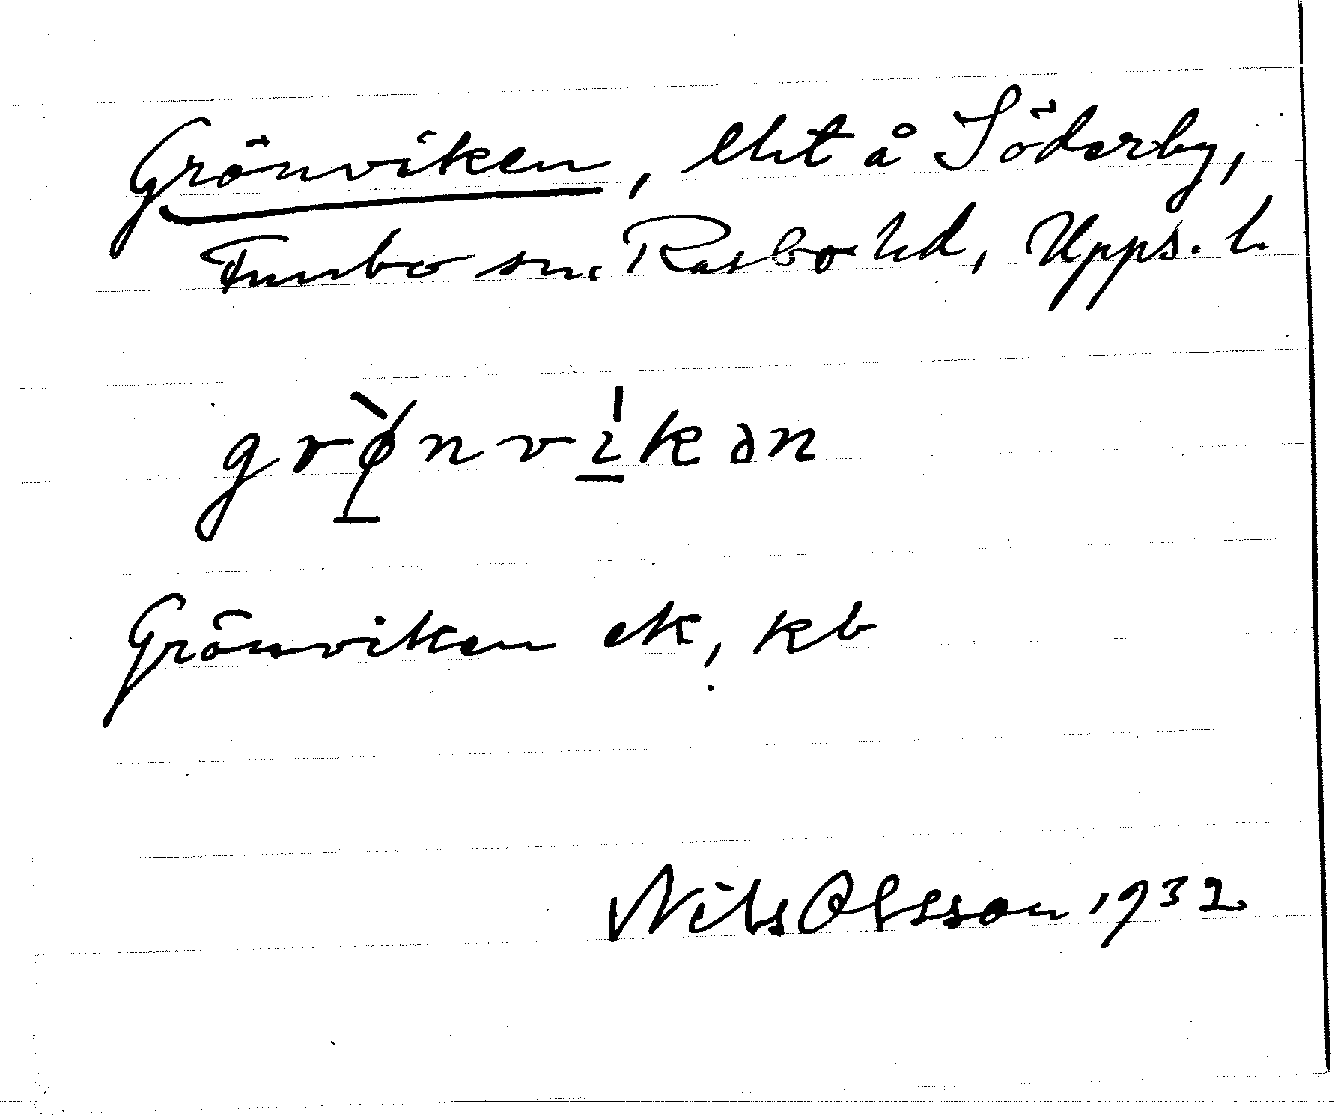 Grönviken, lht å Söderby,
Funbo sn. Rasbo hd, Upps. l.
grø̀nvikən
Grönviken ek, kb
Nils Olsson 1932